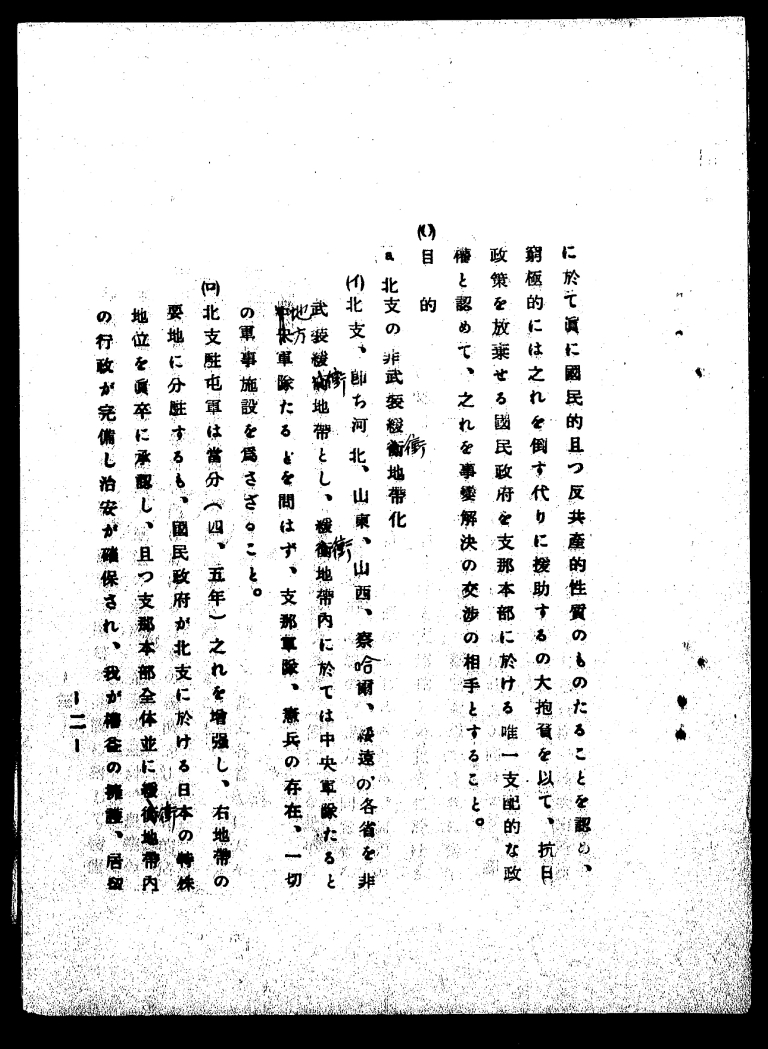 に於て眞に國民的且つ反共產的性質のものたることを認め、
窮極的には之れを倒す代りに援助するの大抱負を以て、抗日
政策を放棄せる國民政府を支那本部に於ける唯一支配的な政
權と認めて、之れを事變解決の交渉の相手とすること。
(ロ)目的
a 北支の非武裝緩衝地帶化
衝
(イ)北支、即ち河北、山東、山西、察哈爾、綏遠の各省を非
武裝緩衝地帶とし、緩衝地帶內に於ては中央軍隊たると
衝 衝
地方軍隊たるとを問はず、支那軍隊、憲兵の存在、一切
の軍事施設を爲さざること。
(ロ)北支駐屯軍は當分(四、五年)之れを增强し、右地帶の
要地に分駐するも、國民政府が北支に於ける日本の特殊
地位を眞卒に承認し、且つ支那本部全体並に緩衝地帶內
衝
の行政が完備し治安が確保され、我が權益の擁護、居留
-二-